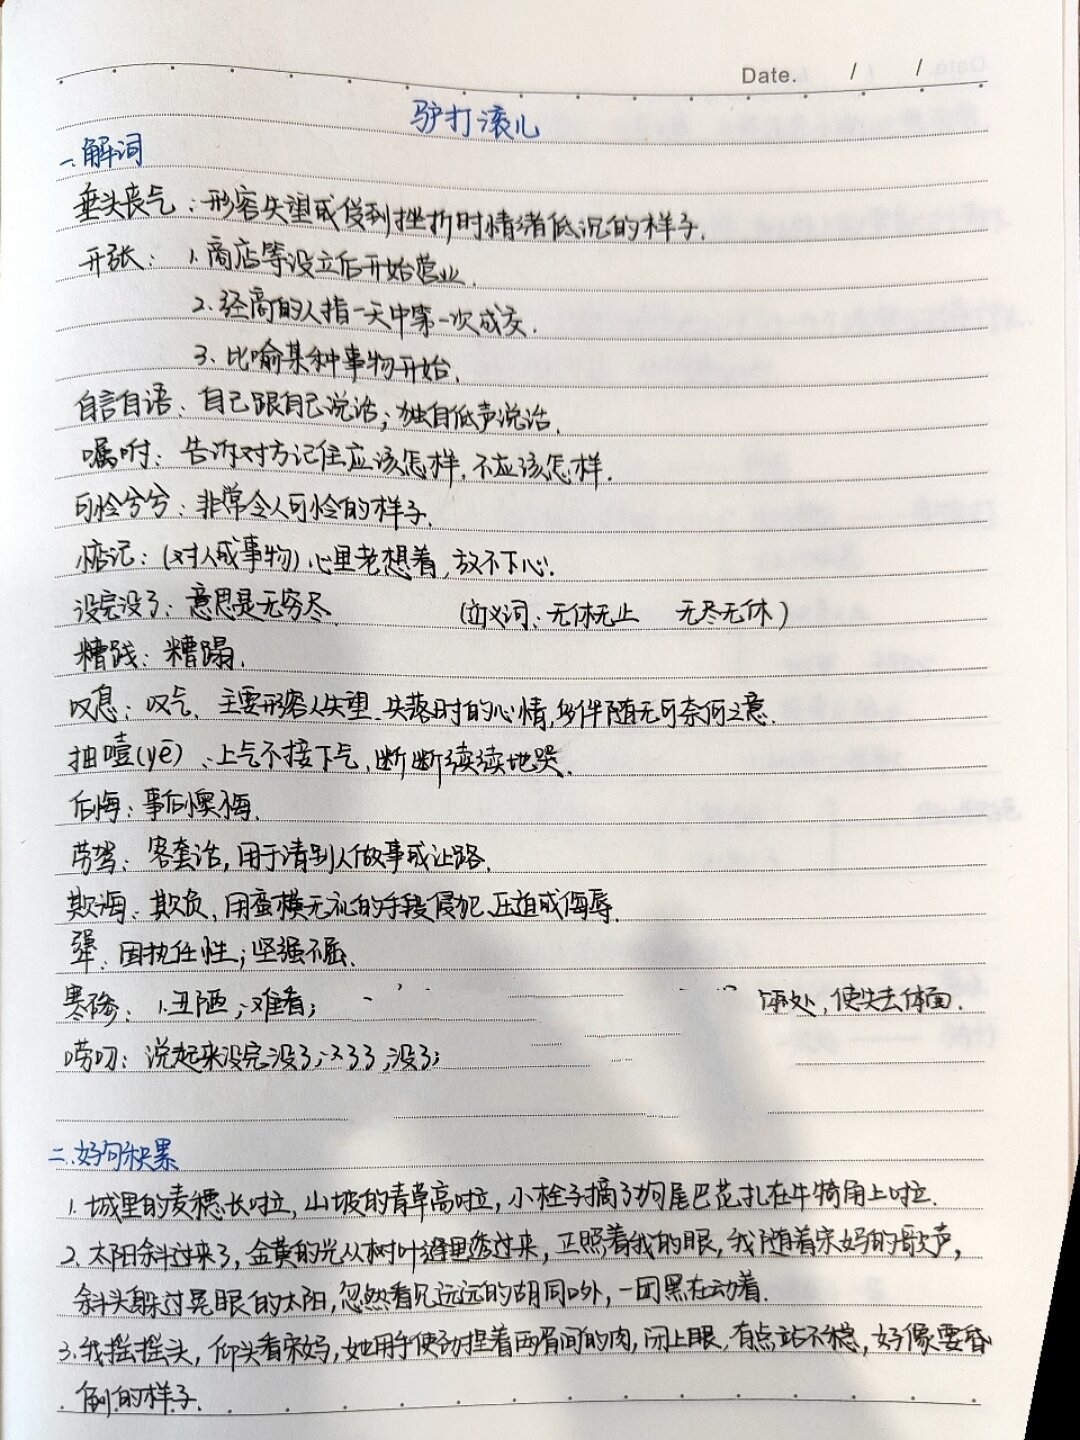 Date. / /
驴打滚儿
一.解词
垂头丧气：形容失望或受到挫折时情绪低沉的样子.
开张：1.商店等设立后开始营业.
2.经商的人指一天中第一次成交.
3.比喻某种事物开始.
自言自语：自己跟自己说话；独自低声说话.
嘱咐：告诉对方记住应该怎样，不应该怎样.
可怜兮兮：非常令人可怜的样子.
惦记：(对人或事物)心里老想着，放不下心.
没完没了：意思是无穷尽. (近义词：无休无止 无尽无休)
糟践：糟蹋.
叹息：叹气，主要形容人失望、失落时的心情，多伴随无可奈何之意.
抽噎(yē)：上气不接下气，断断续续地哭.
后悔：事后懊悔.
劳驾：客套话，用于请别人做事或让路.
欺侮：欺负，用蛮横无礼的手段侵犯、压迫或侮辱.
犟：固执任性；坚强不屈.
寒碜：1.丑陋；难看； 处，使失去体面.
唠叨：说起来没完没了；
二.好句积累
1.城里的麦穗长啦，山坡的青草高啦，小栓子摘了狗尾巴花扎在牛犄角上啦.
2.太阳斜过来了，金黄的光从树叶缝里透过来，正照着我的眼，我随着宋妈的歌声，
斜头躲过晃眼的太阳，忽然看见远远的胡同口外，一团黑在动着.
3.我摇摇头，仰头看宋妈，她用手使劲捏着两眉间的肉，闭上眼，有点站不稳，好像要昏
倒的样子.